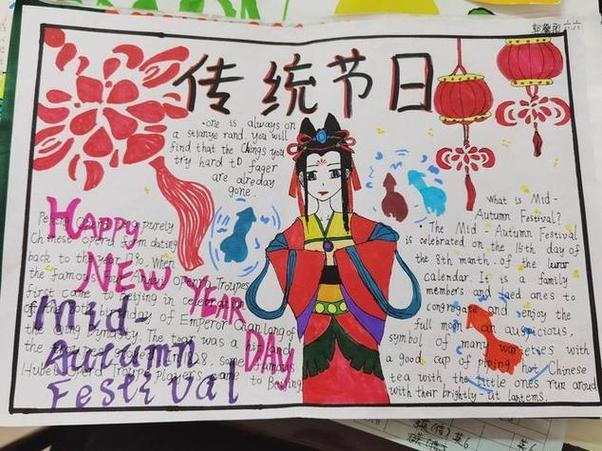 传统节日
one is always on
a strange rand. you will
find that the things you
try hard to fager
are alreday
gone.
HAPPY
NEW
YEAR
DAY
mid-
Autumn
Festival
purely
Chinese opera form dating
back to the
the famous Opera Troupes
first came to Beijing in celebration
of the birthday of Emperor Qianlong of
the Qing dynasty. The
the 1828, some famous
Hubei Opera Troupe players came to Beijing
What is Mid-
Autumn Festival?
The Mid-Autumn Festival
is celebrated on the 15th day of
the 8th month of the lunar
calendar. It is a family
members and loed ones to
congregate and enjoy the
full moon an auspicious,
symbol of many warieties with
a good cap of piping hot Chinese
tea with the little ones run aroud
with their brightly-lit lantems.
英6
英6